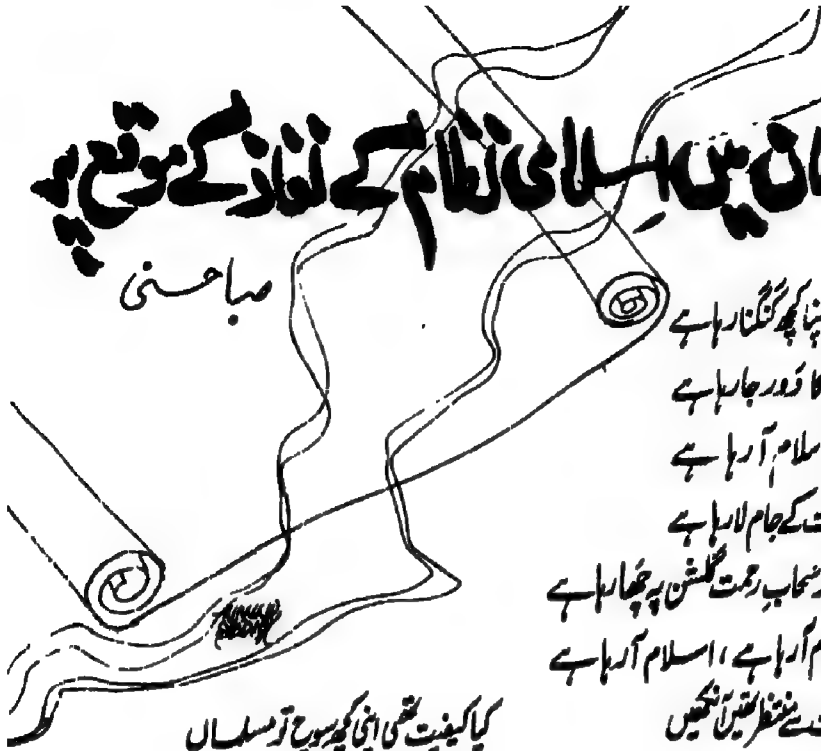 میں اِسلامی نظام کے نفاذ کے موقع پر
صبا حسنی
کچھ گنگنا رہا ہے
دَور جا رہا ہے
آ رہا ہے
کے جام لا رہا ہے
سحابِ رحمت گلشن پہ چھا رہا ہے
آ رہا ہے ، اسلام آ رہا ہے
سے منتظر تھیں آنکھیں
کیا کیفیت تھی اپنی کچھ سوچ تو مسلماں